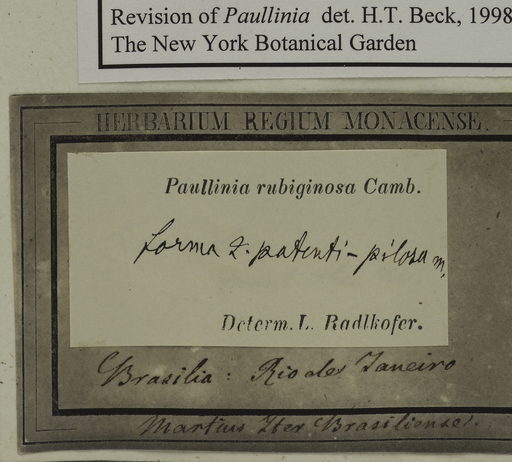 Revision of Paullinia det. H.T. Beck, 1998
The New York Botanical Garden
HERBARIUM REGIUM MONACENSE.
Paullinia rubiginosa Camb.
forma 2. patenti-pilosa m.
Determ. L. Radlkofer.
Brasilia: Rio de Janeiro
Martius Iter Brasiliense.